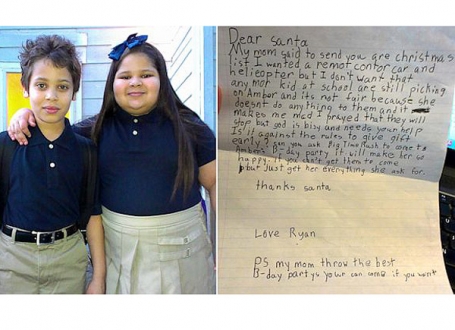 Dear santa
My mom said to send you are christmas
list I wanted a remot contor car and
helieopter but I don't want that
any mor kid at school are still picking
on Amber and its not fair because she
doesnt do anything to them and it
makes me mad I prayed that they will
stop but god is bisy and needs your help
Is it against the rules to give gift
early? Can you ask Big Time Rush to come to
Amber's B-day party it will make her so
happy. If you can't get them to come
but Just get her everything she ask for.
thanks santa
Love Ryan
PS my mom throw the best
B-day partys your can come if you want